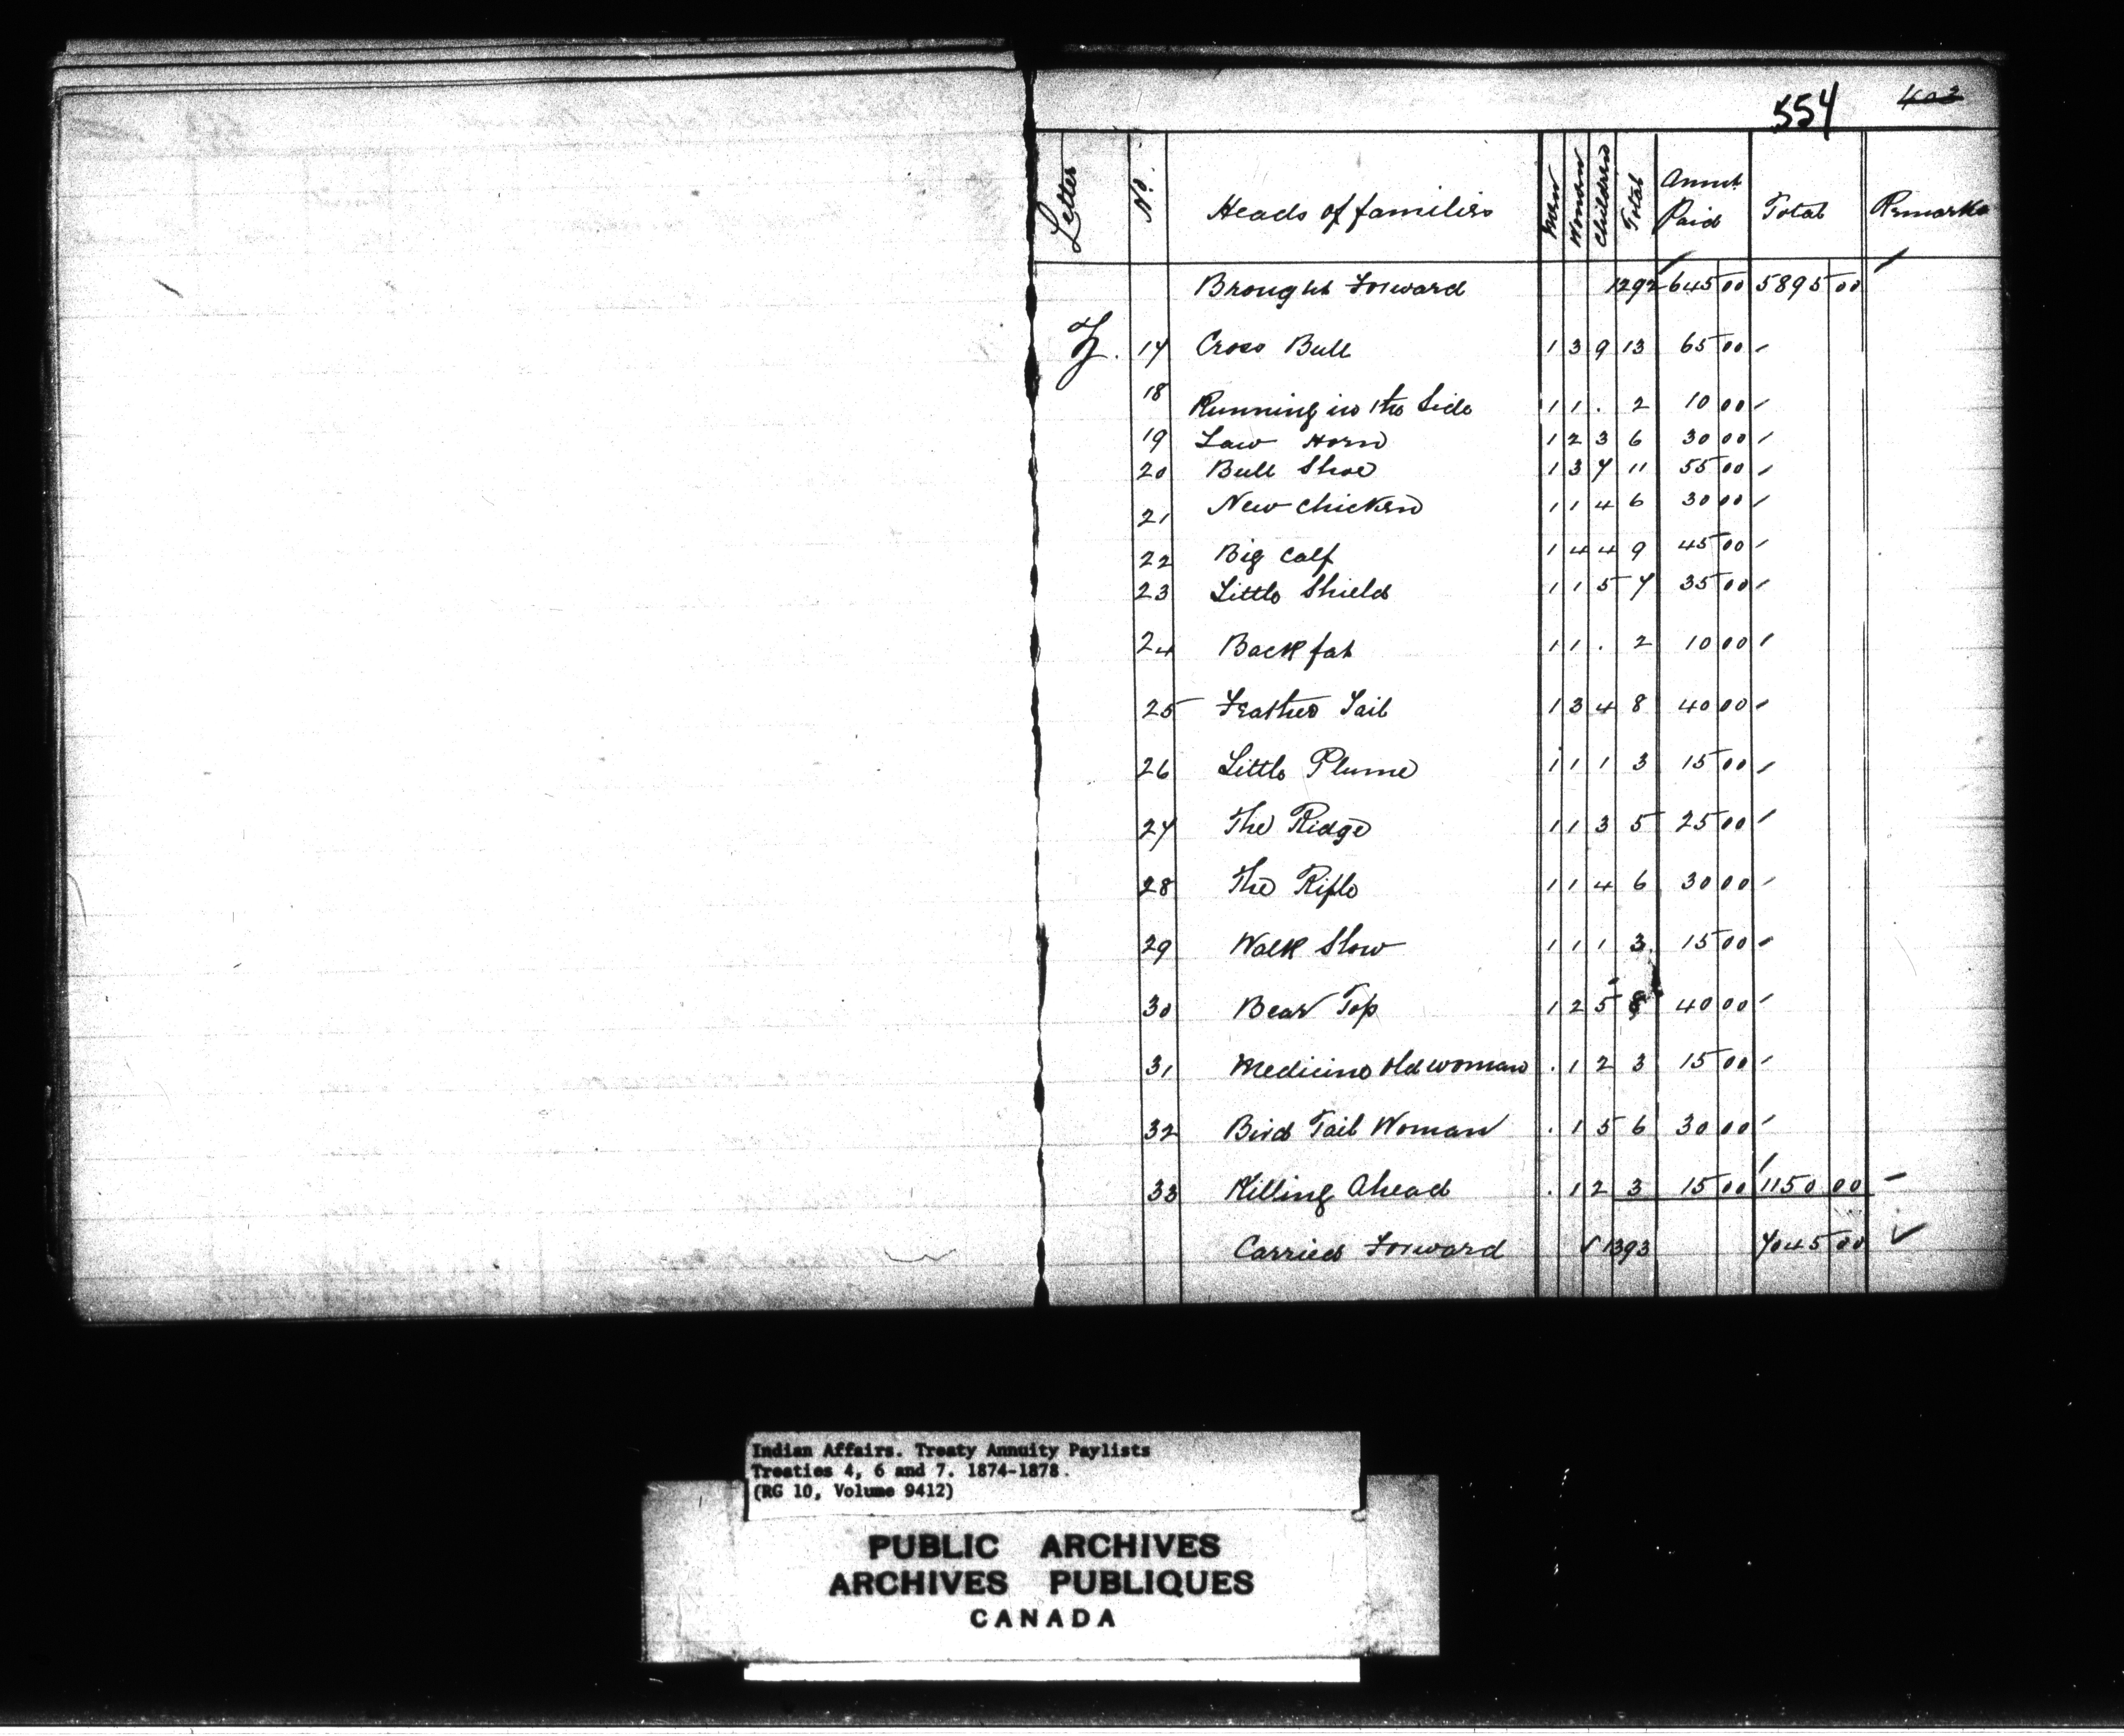 554 403
Letter No. Heads of families Men Women Children Total Annut Paid Total Remarks
Brought Forward 1292 645 00 5895 00
Z. 17 Cross Bull 1 3 9 13 65 00
18 Running in the Side 1 1 . 2 10 00
19 Law Horn 1 2 3 6 30 00
20 Bull Shoe 1 3 7 11 55 00
21 New Chicken 1 1 4 6 30 00
22 Big Calf 1 4 4 9 45 00
23 Little Shield 1 1 5 7 35 00
24 Back fat 1 1 . 2 10 00
25 Feather Tail 1 3 4 8 40 00
26 Little Plume 1 1 1 3 15 00
27 The Ridge 1 1 3 5 25 00
28 The Rifle 1 1 4 6 30 00
29 Walk Slow 1 1 1 3 15 00
30 Bear Top 1 2 5 8 40 00
31 Medicine Old woman . 1 2 3 15 00
32 Bird Tail Woman . 1 5 6 30 00
33 Killing Ahead . 1 2 3 15 00 1150 00
Carried Forward 1393 7045 00
Indian Affairs. Treaty Annuity Paylists
Treaties 4, 6 and 7. 1874-1878.
(RG 10, Volume 9412)
PUBLIC ARCHIVES
ARCHIVES PUBLIQUES
CANADA